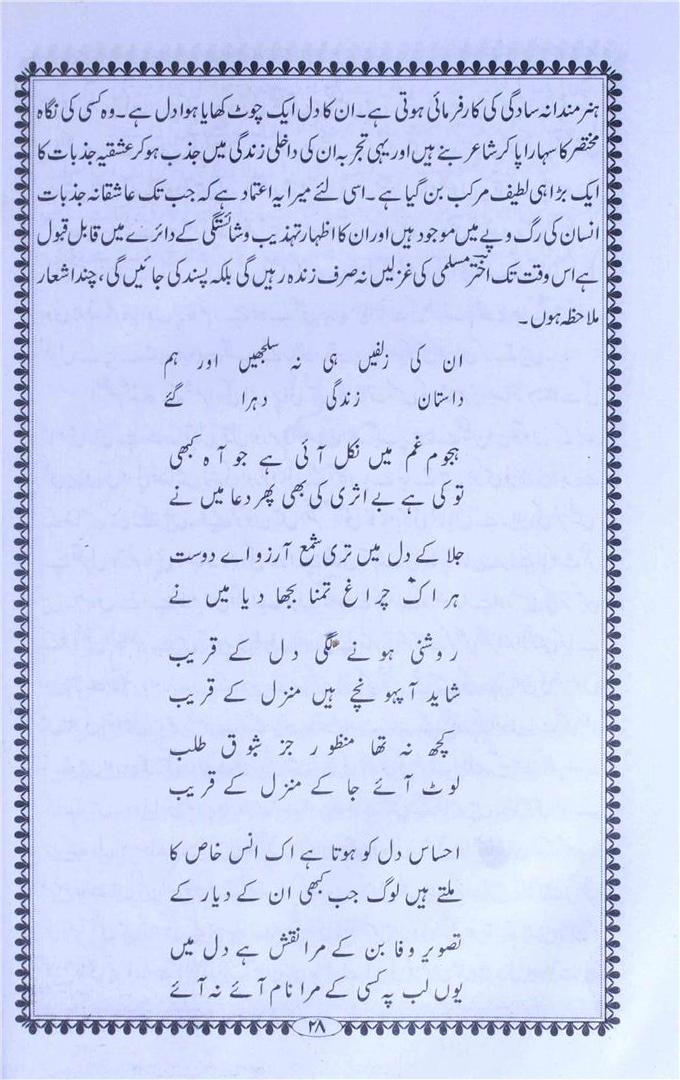 ہنرمندانہ سادگی کی کارفرمائی ہوتی ہے۔ ان کا دل ایک چوٹ کھایا ہوا دل ہے۔ وہ کسی کی نگاہ
مختصر کا سہارا پا کر شاعر بنے ہیں اور یہی تجربہ ان کی داخلی زندگی میں جذب ہو کر عشقیہ جذبات کا
ایک بڑا ہی لطیف مرکب بن گیا ہے۔ اسی لئے میرا یہ اعتماد ہے کہ جب تک عاشقانہ جذبات
انسان کی رگ و پے میں موجود ہیں اور ان کا اظہار تہذیب و شائستگی کے دائرے میں قابل قبول
ہے اس وقت تک اخترؔ مسلمی کی غزلیں نہ صرف زندہ رہیں گی بلکہ پسند کی جائیں گی، چند اشعار
ملاحظہ ہوں۔
ان کی زلفیں ہی نہ سلجھیں اور ہم
داستان زندگی دہرا گئے
ہجوم غم میں نکل آئی ہے جو آہ کبھی
تو کی ہے بے اثری کی بھی پھر دعا میں نے
جلا کے دل میں تری شمع آرزو اے دوست
ہر اک چراغ تمنا بجھا دیا میں نے
روشنی ہونے لگی دل کے قریب
شاید آ پہونچے ہیں منزل کے قریب
کچھ نہ تھا منظور جز شوق طلب
لوٹ آئے جا کے منزل کے قریب
احساس دل کو ہوتا ہے اک انس خاص کا
ملتے ہیں لوگ جب کبھی ان کے دیار کے
تصویر وفا بن کے مرا نقش ہے دل میں
یوں لب پہ کسی کے مرا نام آئے نہ آئے
۲۸